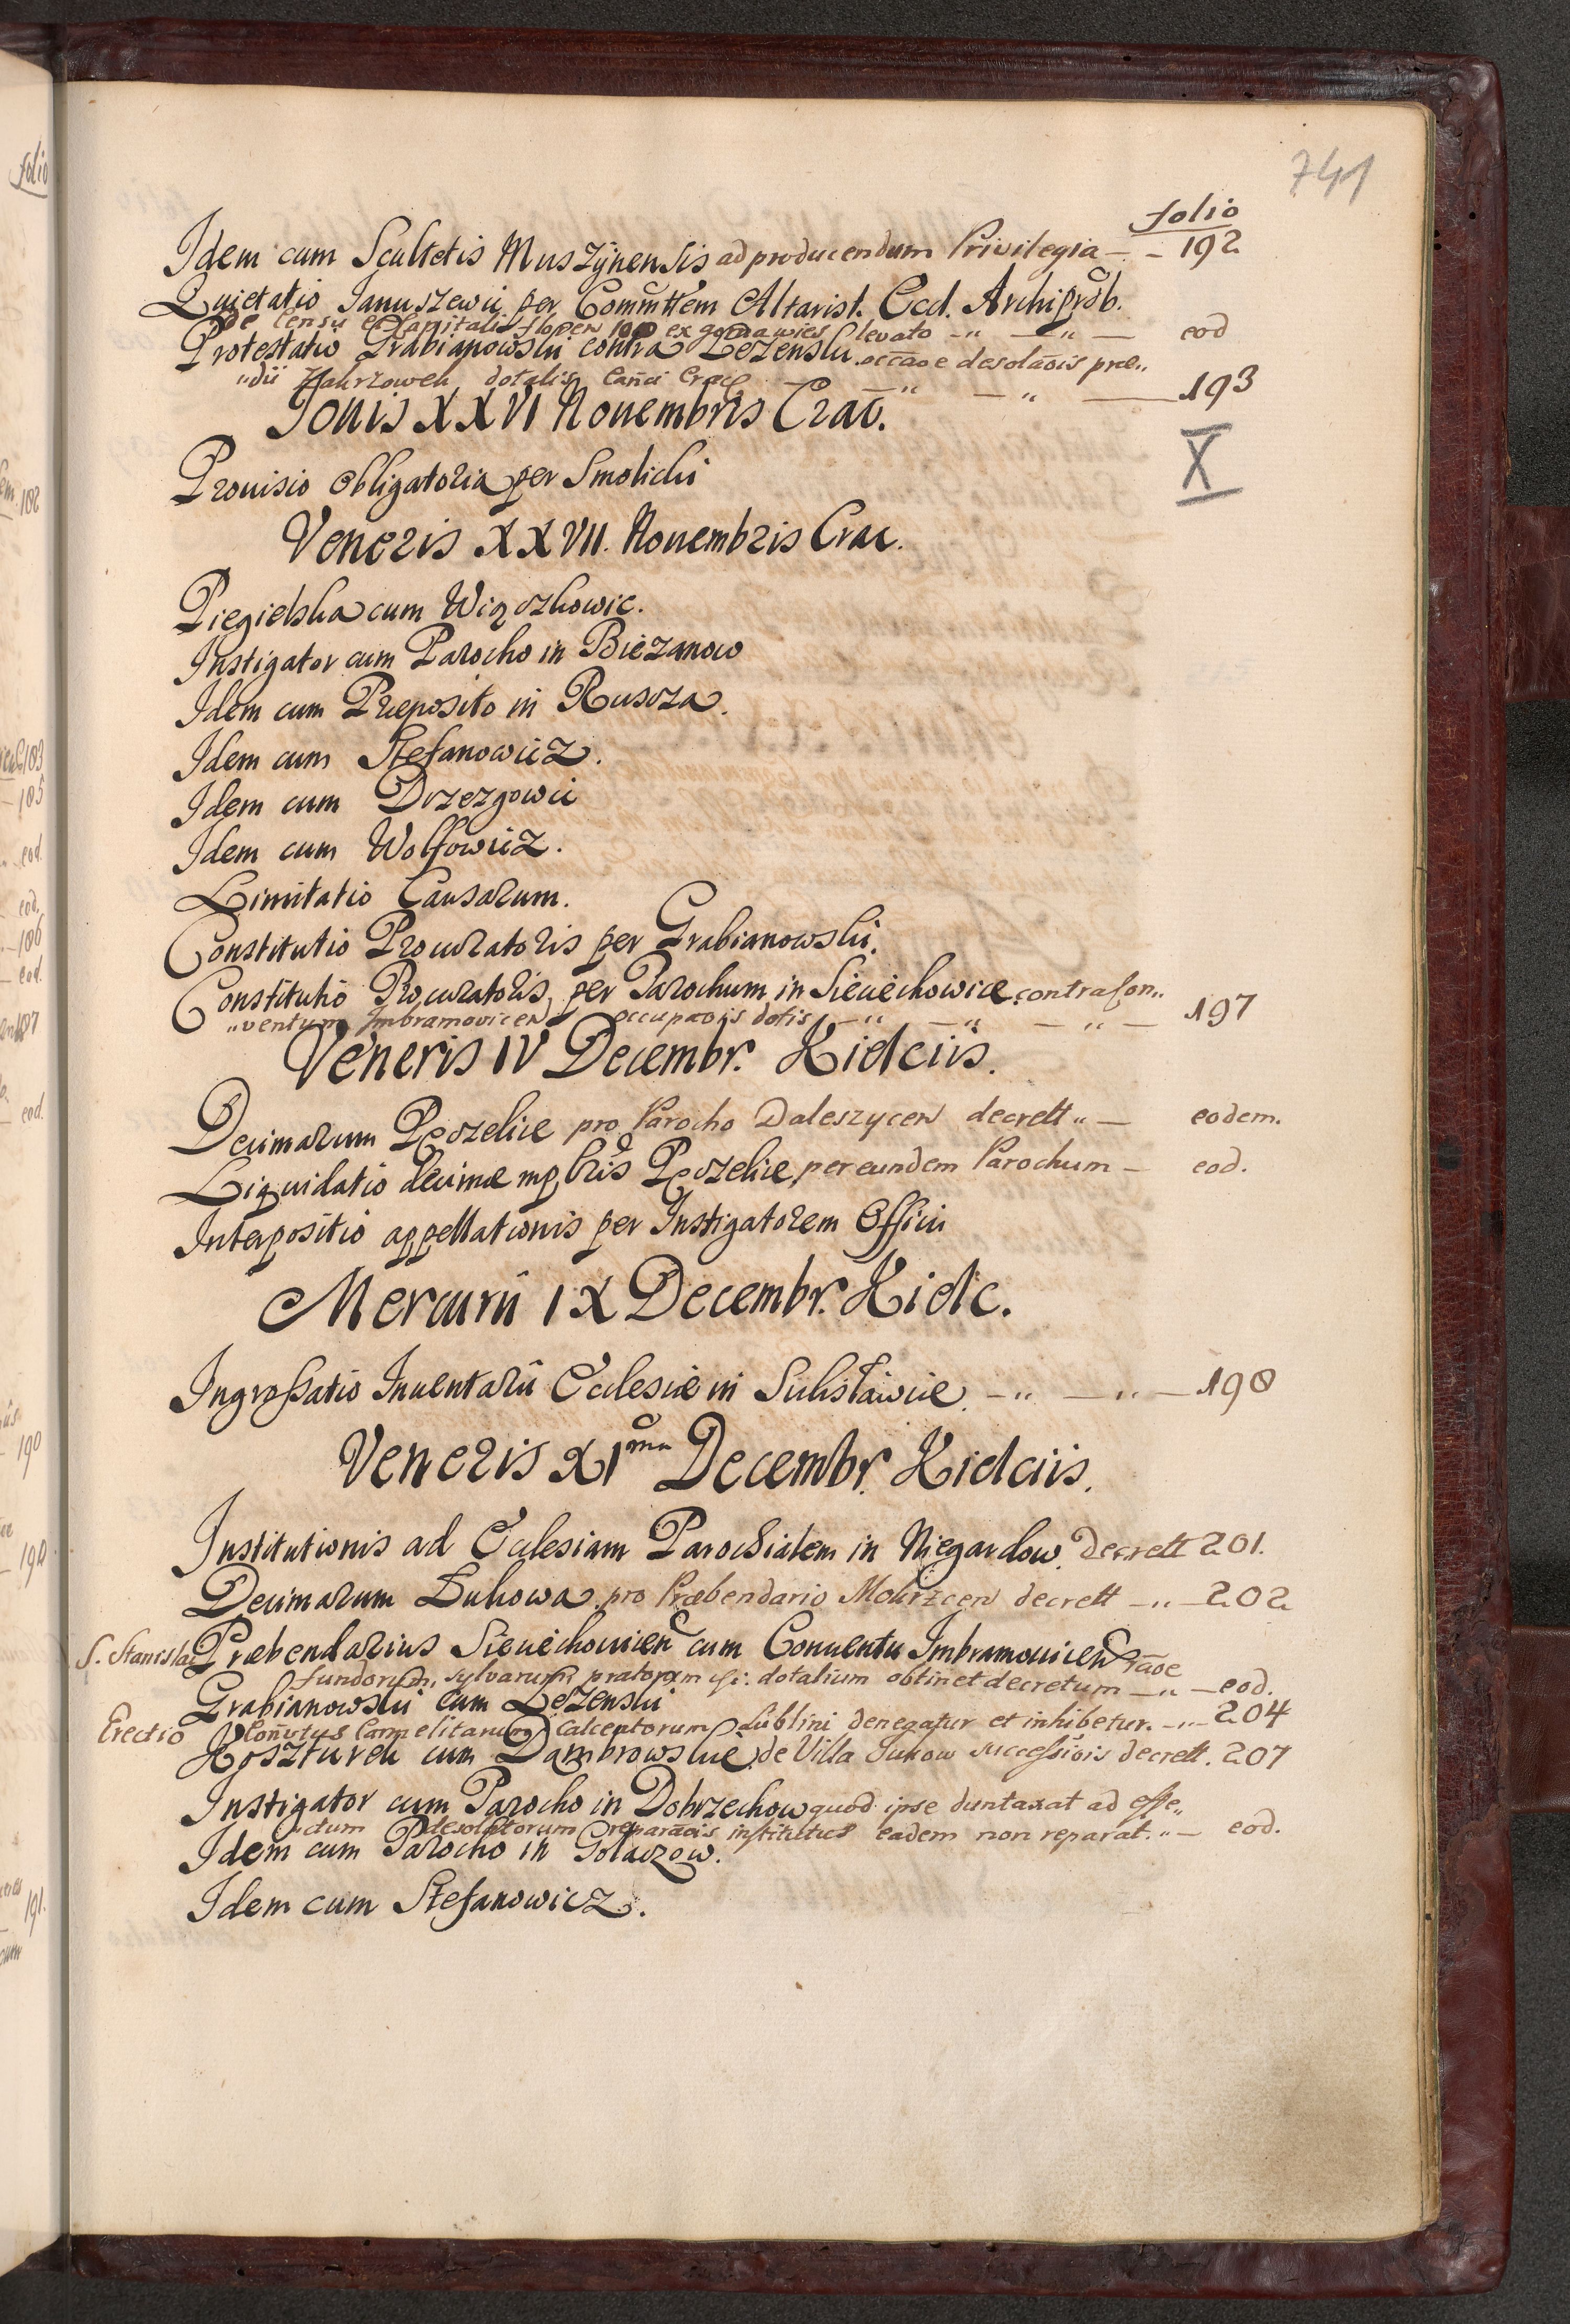 741
folio
Idem cum Scultetis Muszÿnensis ad producendum Privilegia — — 192
Quietatio Januszewii per Committem Altarist. Eccl. Archiprb.
de Censu et Capitali flopen ex levato — " — " — eod
Protestatio Grabianowski contra Lezenski occaoe desolaois præ„
„dii Zakrzowek dotalis Canci Crac — " — " — 193
Jouis XXVI Nouembris Crac.
X
Prouisio obligatoria per Smolicki
Veneris XXVII. Nouembris Crac.
Piegielska cum Wiązkowic.
Instigator cum Parocho in Bieżanow
Idem cum Præposito in Rusoza.
Idem cum Stefanowicz.
Idem cum Drzezgowic
Idem cum Wolfowicz.
Limitatio Causarum.
Constitutio Procuratoris per Grabianowski.
Constitutio Procuratoris per Parochum in Sieciechowice contra Con„
„ventum Imbramovicen occupaois dotis — " — " — " — 197
Veneris IV Decembr. Kielciis.
Decimarum pro Parocho Daleszycen decrett " — eodem.
Liquidatio decimæ per eundem Parochum — eod.
Interpositio appellationis per Instigatorem Officii
Mercurii IX Decembr. Kielc.
Ingrossatio Inuentarii Ecclesiæ in Sulisławice. — " — " — 198
Veneris XIma Decembr. Kielciis.
Institutionis ad Ecclesiam Parochialem in Niegardow. Decrett 201.
Decimarum Lukowa pro Præbendario Mokrzcen decrett — " — 202
S. Stanislai Præbendarius Sieciechouicen cum Conuentu Imbramouicen raoe
fundorum, sylvarum, pratorum dotalium obtinet decretum — " — eod.
Grabianowski cum Lezenski
Erectio Convtus Carmelitarum Calceatorum Lublini denegatur et inhibetur. — " — 204
Koszturek cum Dambrowskie de Villa Sukow successiois decrett. 207
Instigator cum Parocho in Dobrzechow quod ipse duntaxat ad effe„
„ctum desolatorum reparaois institutus eadem non reparat. " — eod.
Idem cum Parocho in Gołaczow.
Idem cum Stefanowicz.